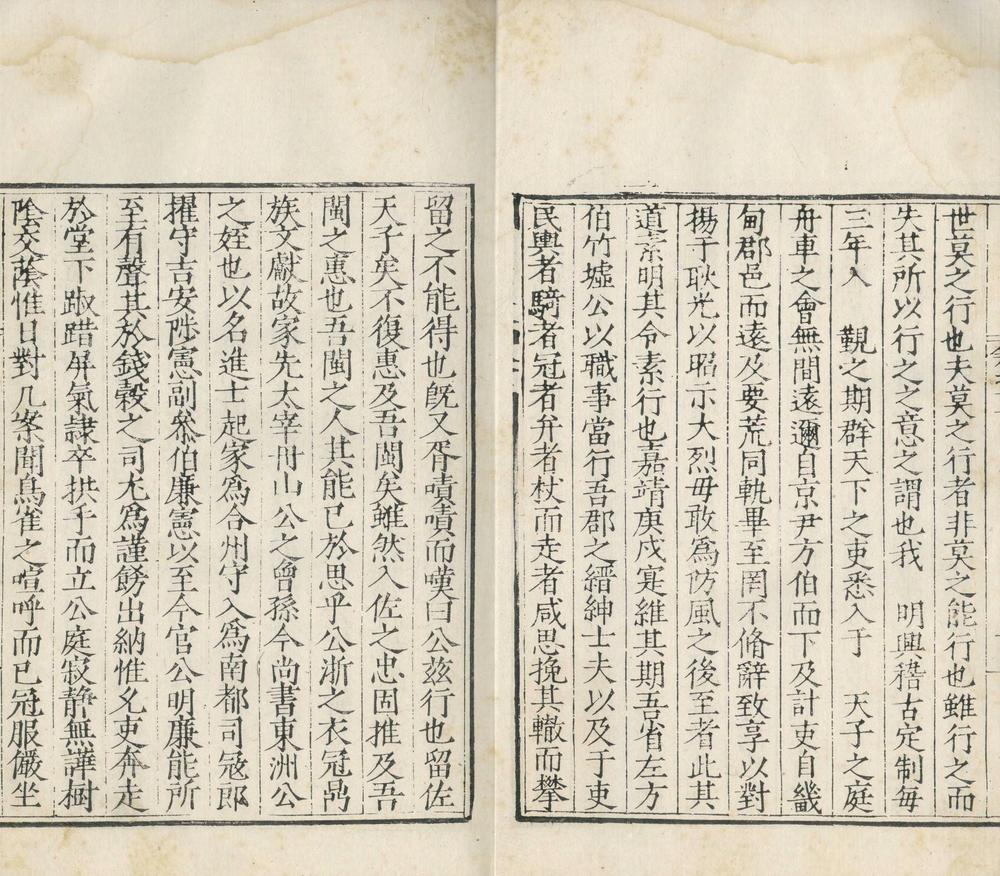 世莫之行也夫莫之行者非莫之能行也雖行之而
失其所以行之之意之謂也我　明興稽古定制每
三年入　覲之期群天下之吏悉入于　天子之庭
舟車之會無間遠邇自京尹方伯而下及計吏自畿
甸郡邑而遠及要荒同軌畢至罔不脩辭致享以對
揚于耿光以昭示大烈毋敢為防風之後至者此其
道素明其令素行也嘉靖庚戌寔維其期吾省左方
伯竹墟公以職事當行吾郡之縉紳士夫以及于吏
民輿者騎者冠者弁者杖而走者咸思挽其轍而攀
留之不能得也旣又胥嘖嘖而嘆曰公茲行也留佐
天子矣不復惠及吾閩矣雖然入佐之忠固推及吾
閩之惠也吾閩之人其能已於思乎公浙之衣冠咼
族文獻故家先太宰冊山公之曾孫今尚書東洲公
之姪也以名進士起家爲合州守入爲南都司寇郎
擢守吉安陟憲副叅伯廉憲以至今官公明廉能所
至有聲其於錢穀之司尤爲謹餝出納惟允吏奔走
於堂下踧踖屏氣隷卒拱手而立公庭寂靜無譁樹
陰交蔭惟日對几案聞鳥雀之喧呼而已冠服儼坐